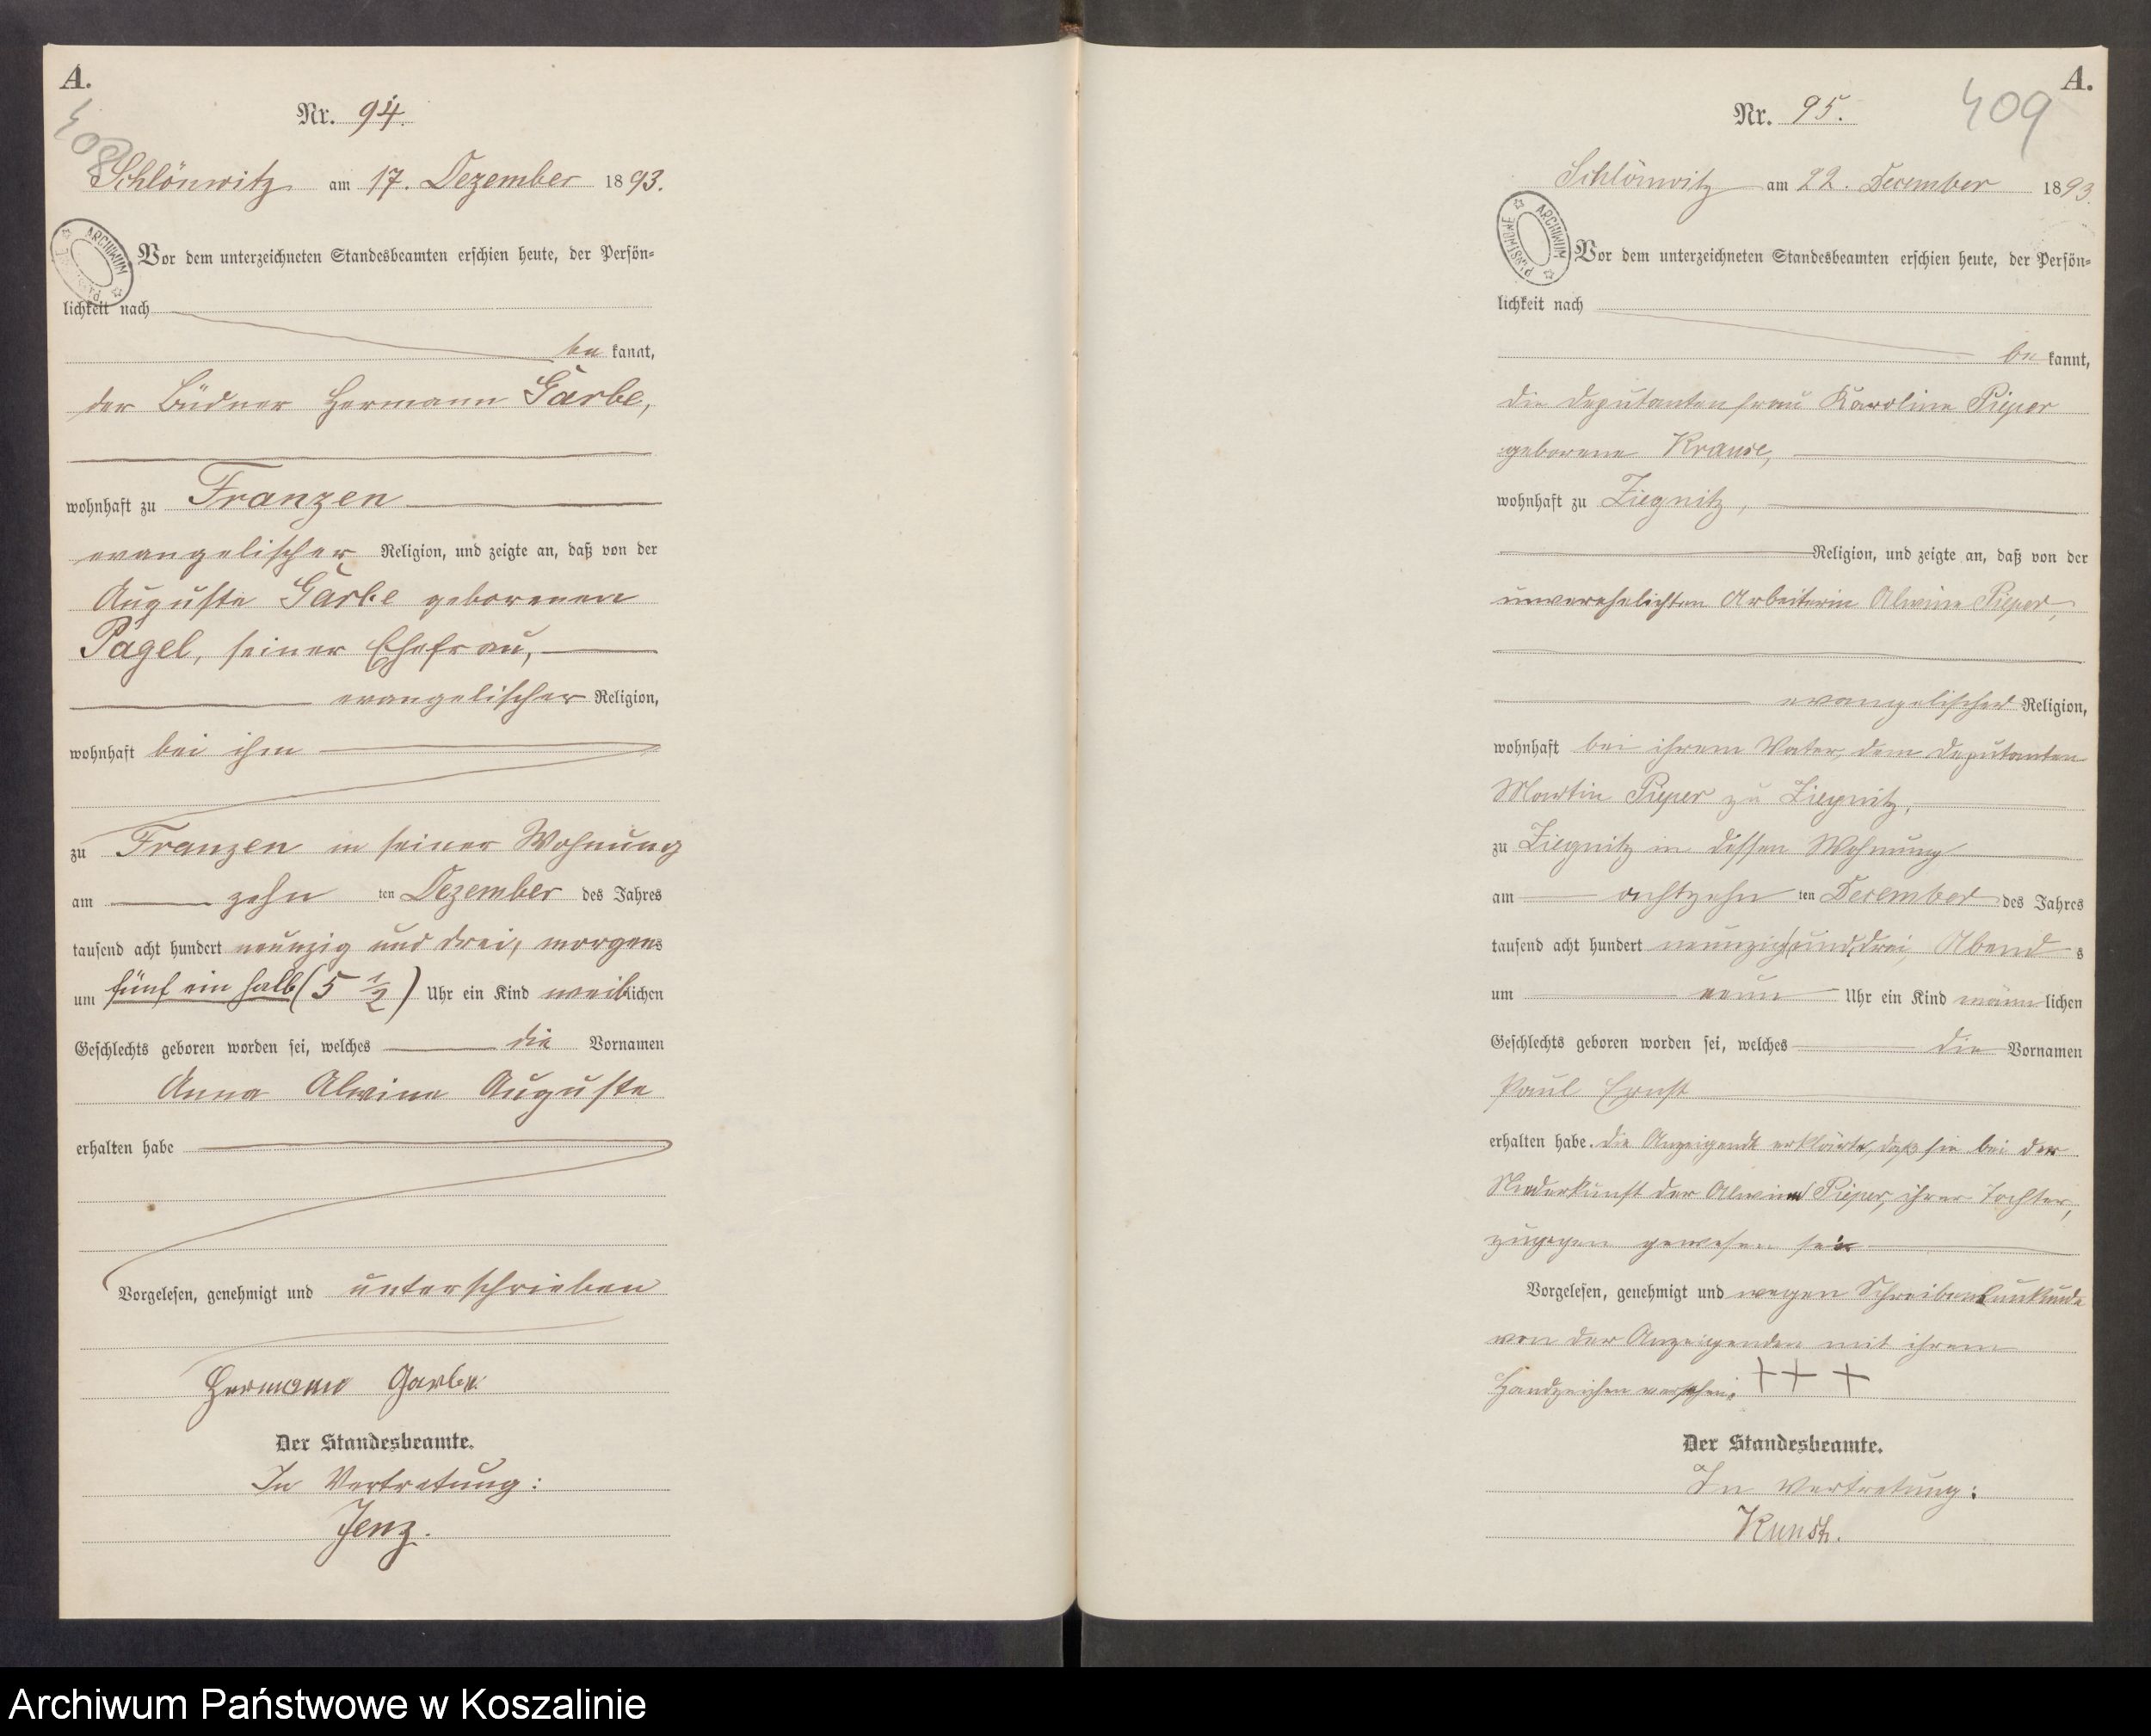 A.
Nr. 94.
408
Schlönwitz am 17. Dezember 1893.
ARCHIWUM
Vor dem unterzeichneten Standesbeamten erschien heute, der Persön-
lichkeit nach
be kannt,
der Büdner Hermann Garbe,
wohnhaft zu Franzen
evangelischer Religion, und zeigte an, daß von der
Auguste Garbe geborenen
Pagel, seiner Ehefrau,
evangelischer Religion,
wohnhaft bei ihm
zu Franzen in seiner Wohnung
am zehn ten Dezember des Jahres
tausend acht hundert neunzig und drei, morgens
um fünf ein halb (5 1/2) Uhr ein Kind weiblichen
Geschlechts geboren worden sei, welches die Vornamen
Anna Alwine Auguste
erhalten habe
Vorgelesen, genehmigt und unterschrieben
Hermann Garbe.
Der Standesbeamte.
In Vertretung:
Jenz.
A.
Nr. 95.
409
Schlönwitz am 22. December 1893.
ARCHIWUM PAŃSTWOWE
Vor dem unterzeichneten Standesbeamten erschien heute, der Persön-
lichkeit nach
be kannt,
die Deputantenfrau Karoline Pieper
geborene Krause,
wohnhaft zu Ziegnitz,
Religion, und zeigte an, daß von der
unverehelichten Arbeiterin Alwine Pieper,
evangelischer Religion,
wohnhaft bei ihrem Vater, dem Deputanten
Martin Pieper zu Ziegnitz,
zu Ziegnitz in dessen Wohnung
am achtzehn ten December des Jahres
tausend acht hundert neunzig und drei, Abends
um neun Uhr ein Kind männlichen
Geschlechts geboren worden sei, welches die Vornamen
Paul Ernst
erhalten habe. Die Anzeigende erklärte, daß sie bei der
Niederkunft der Alwine Pieper, ihrer Tochter,
zugegen gewesen sei
Vorgelesen, genehmigt und wegen Schreibensunkunde
von der Anzeigenden mit ihrem
Handzeichen versehen. +++
Der Standesbeamte.
In Vertretung:
Archiwum Państwowe w Koszalinie